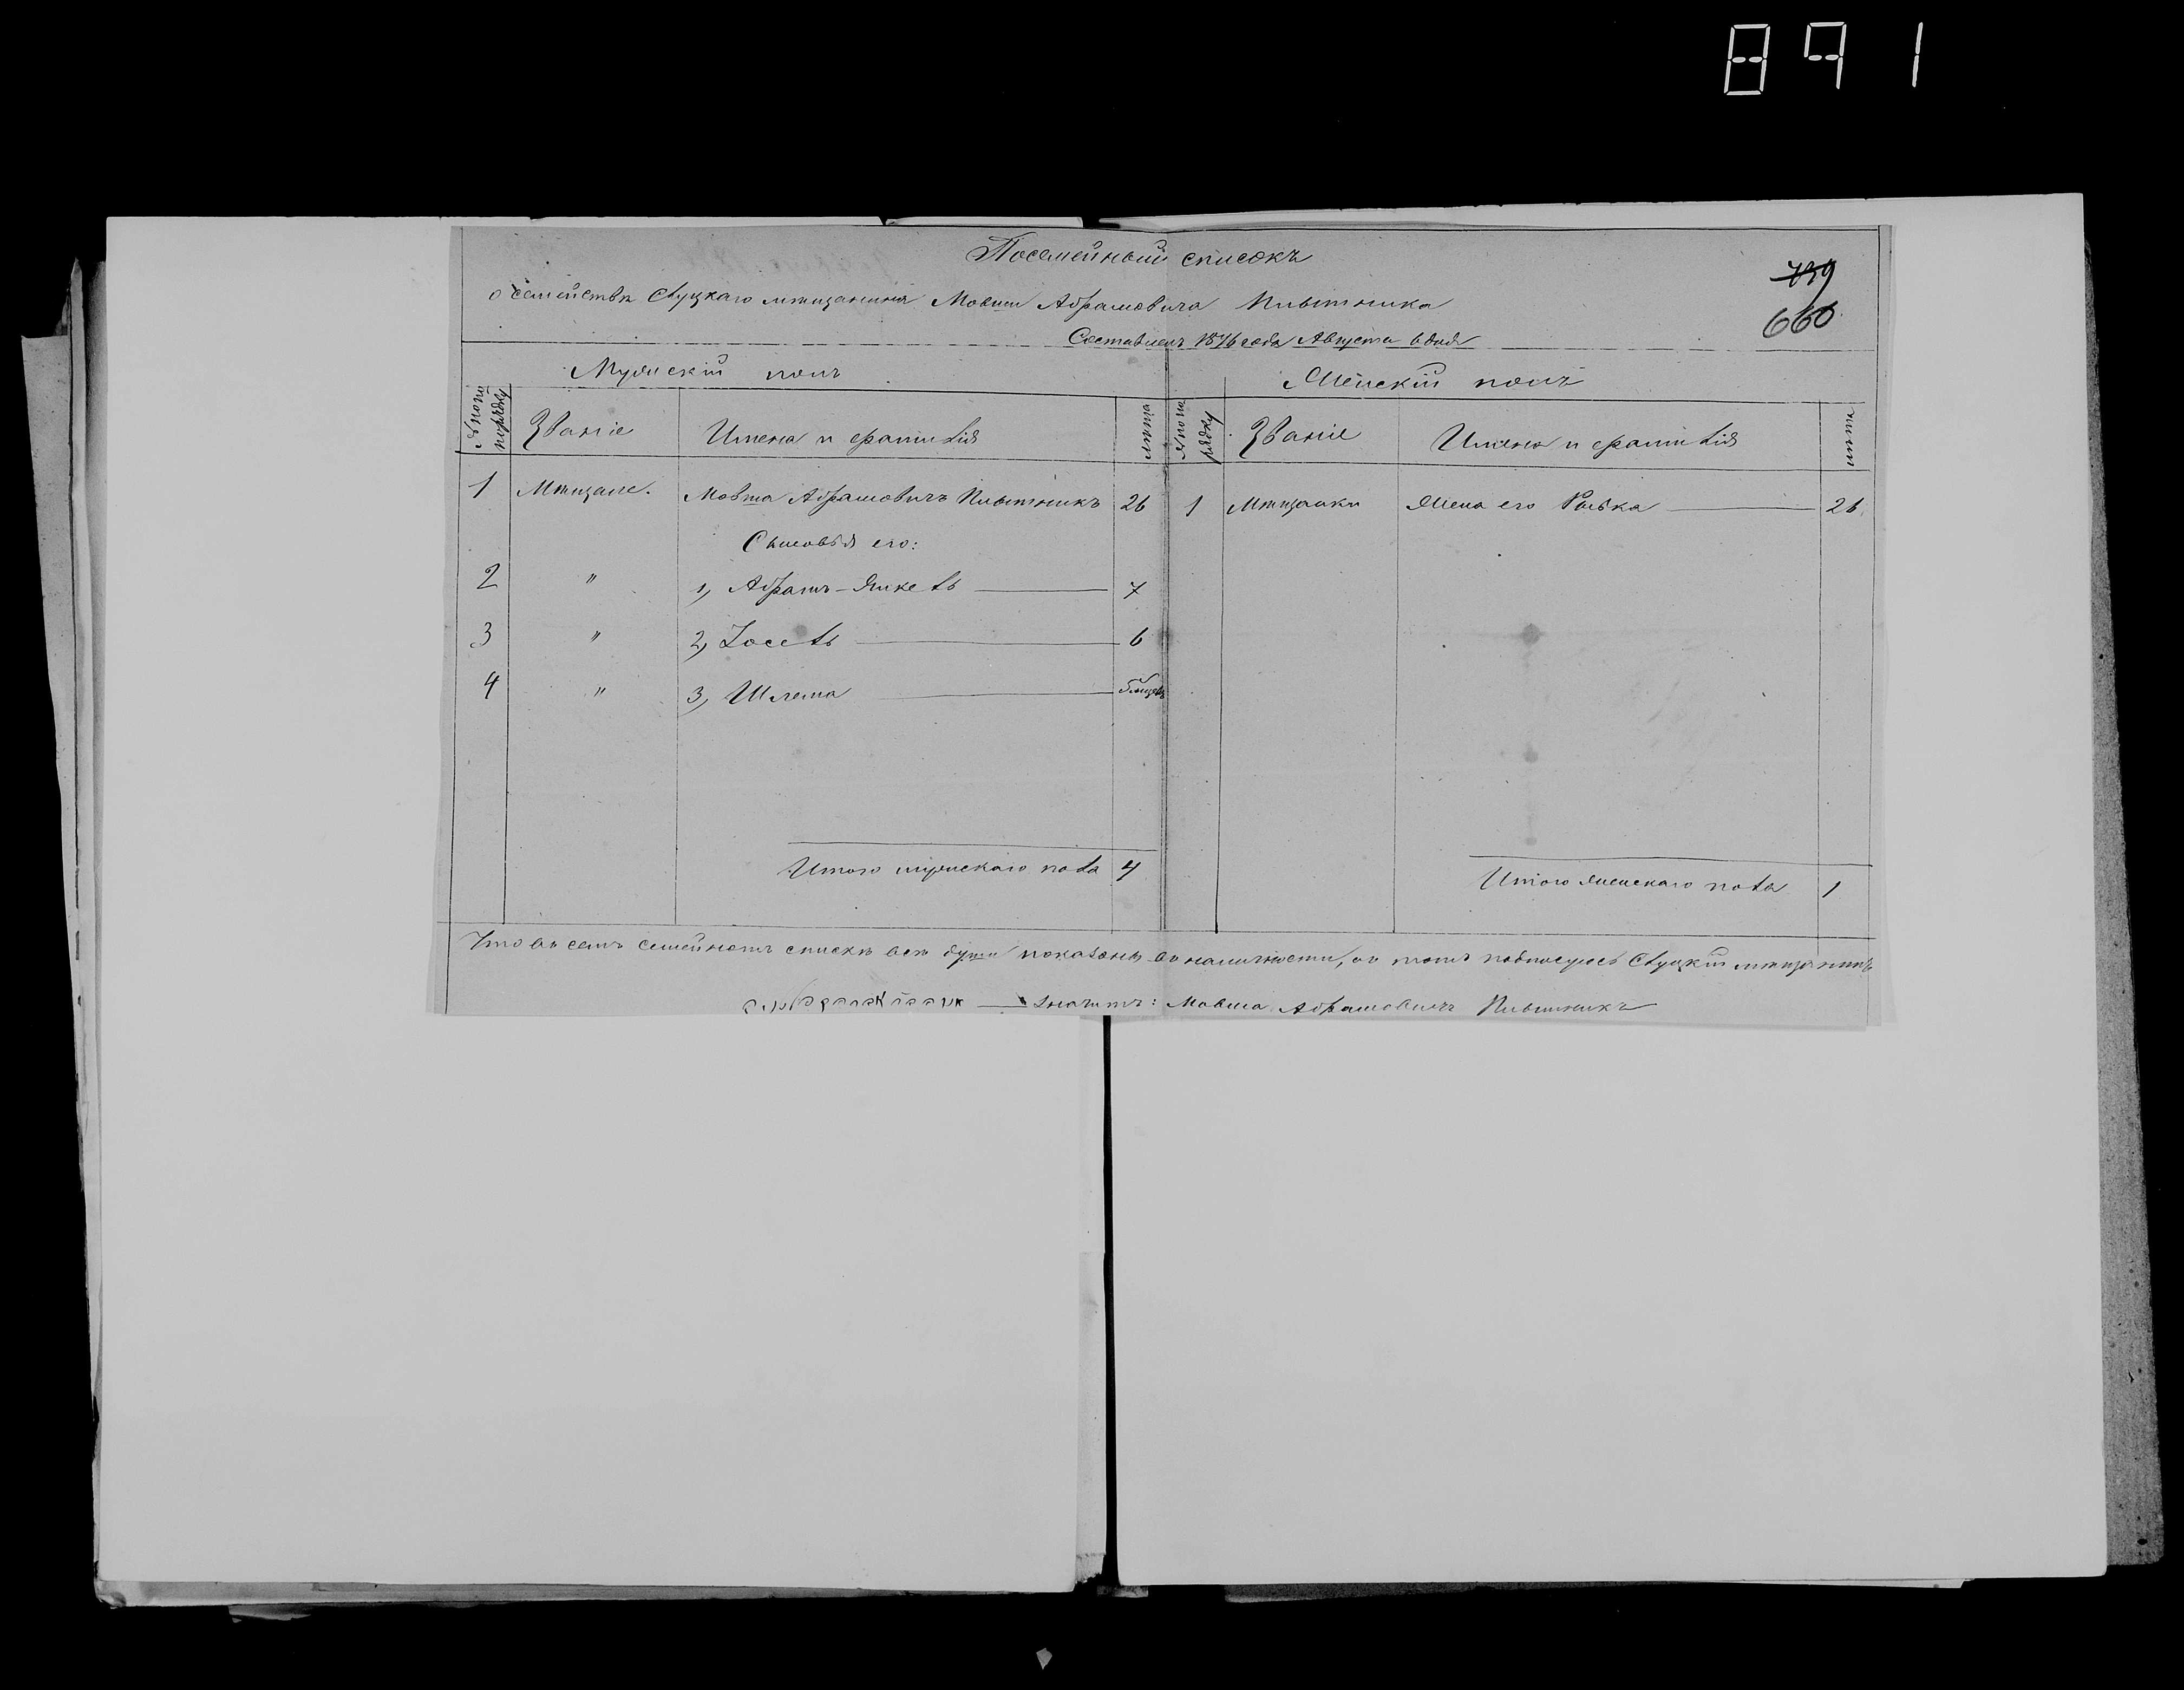 891
Посемейный списокъ
739
о семействѣ Слуцкаго мѣщанина Мовши Абрамовича Пивотника
660
Составленъ 1876 года Августа 6 дня
Мужескій полъ Женскій полъ
№ по порядку Званіе Имена и фамилія лѣта № по порядку Званіе Имена и фамилія лѣта
1 Мѣщане. Мовша Абрамовичъ Пивотникъ 26 1 Мѣщанки Жена его 26
Сыновья его:
2 " 1, Абрамъ-Янкель 7
3 " 2, Іосель 6
4 " 3, Шлема
Итого мужескаго пола 4 Итого женскаго пола 1
Что въ семъ семейномъ спискѣ всѣ души показаны въ наличности, въ томъ подписуюсь Слуцкій мѣщанинъ
значитъ: Мовша Абрамовичъ Пивотникъ